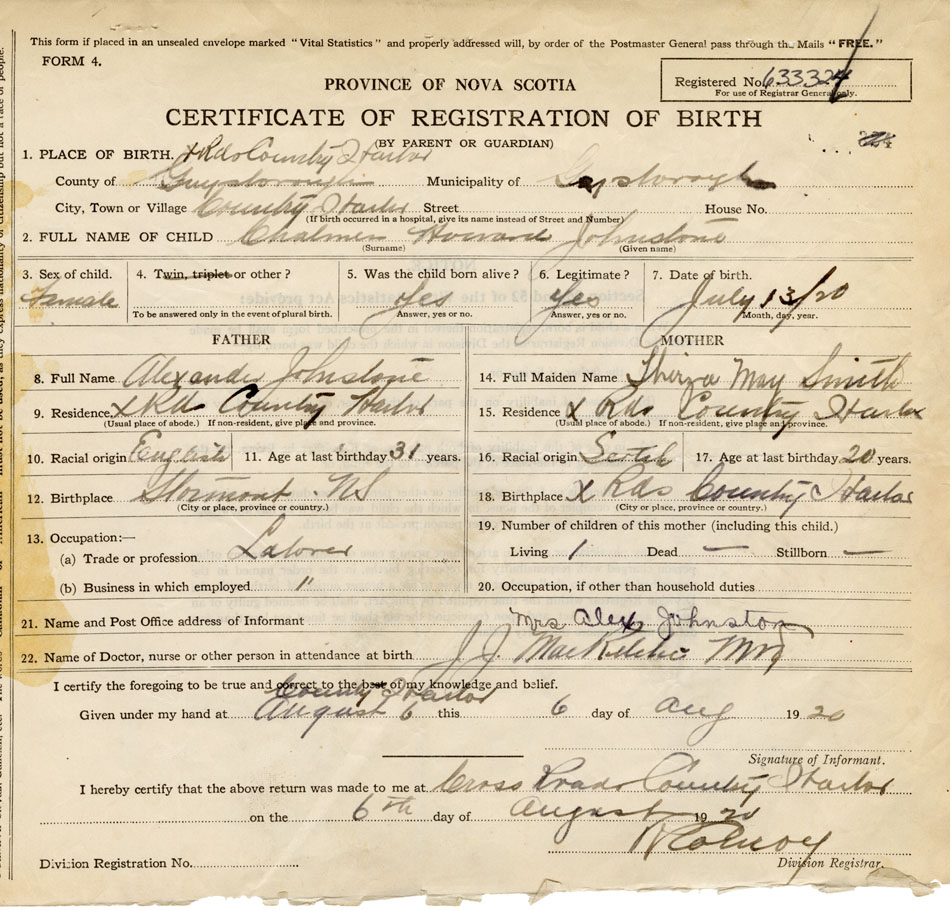 This form if placed in an unsealed envelope marked "Vital Statistics" and properly addressed will, by order of the Postmaster General pass through the Mails "FREE."
FORM 4.
Registered No. 633324
For use of Registrar General only.
PROVINCE OF NOVA SCOTIA
CERTIFICATE OF REGISTRATION OF BIRTH
(BY PARENT OR GUARDIAN)
1. PLACE OF BIRTH. X Rds Country Harbor
County of Guysborough Municipality of Guysborough
City, Town or Village Country Harbor Street House No.
(If birth occurred in a hospital, give its name instead of Street and Number)
2. FULL NAME OF CHILD Chalmers Howard Johnstone
(Surname) (Given name)
3. Sex of child. 4. Twin, triplet or other? 5. Was the child born alive? 6. Legitimate? 7. Date of birth.
Female Yes Yes July 13/20
To be answered only in the event of plural birth. Answer, yes or no. Answer, yes or no. Month, day, year.
FATHER MOTHER
8. Full Name Alexander Johnstone 14. Full Maiden Name Thirza May Smith
9. Residence X Rds Country Harbor 15. Residence X Rds Country Harbor
(Usual place of abode.) If non-resident, give place and province. (Usual place of abode.) If non-resident, give place and province.
10. Racial origin English 11. Age at last birthday 31 years. 16. Racial origin Scotch 17. Age at last birthday 20 years.
12. Birthplace Stormont NS 18. Birthplace X Rds Country Harbor
(City or place, province or country.) (City or place, province or country.)
13. Occupation:— 19. Number of children of this mother (including this child.)
(a) Trade or profession Laborer Living 1 Dead — Stillborn —
(b) Business in which employed " 20. Occupation, if other than household duties
21. Name and Post Office address of Informant Mrs Alex Johnston
22. Name of Doctor, nurse or other person in attendance at birth J. J. MacRitchie MD
I certify the foregoing to be true and correct to the best of my knowledge and belief.
Country Harbor
Given under my hand at August 6 this 6 day of Aug 19 20
Signature of Informant.
I hereby certify that the above return was made to me at Cross Roads Country Harbor
on the 6th day of August 19 20
Division Registration No. Division Registrar.